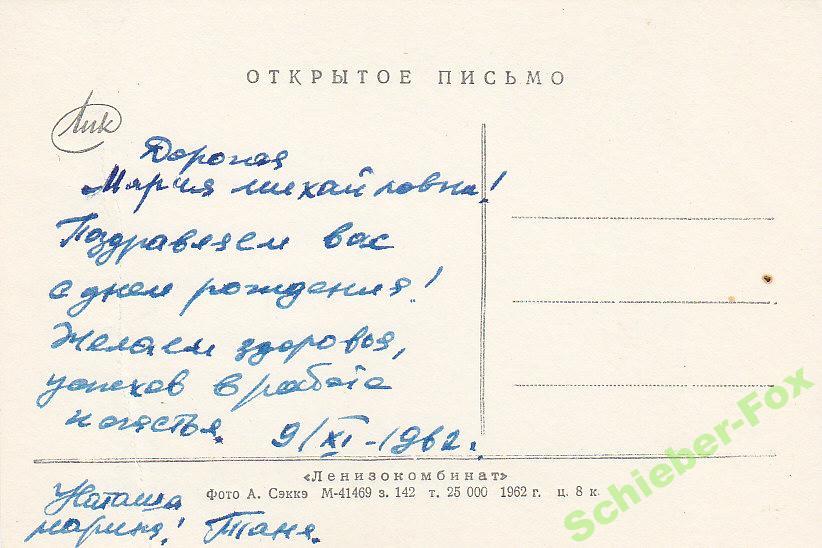 ОТКРЫТОЕ ПИСЬМО
Лик
Дорогая
Мария михайловна!
Поздравляем вас
с днем рождения!
Желаем здоровья,
успехов в работе
и счастья. 9/XI-1962.
«Ленизокомбинат»
Фото А. Сэккэ М-41469 з. 142 т. 25 000 1962 г. ц. 8 к.
Наташа
марина! Таня.
Schieber-Fox